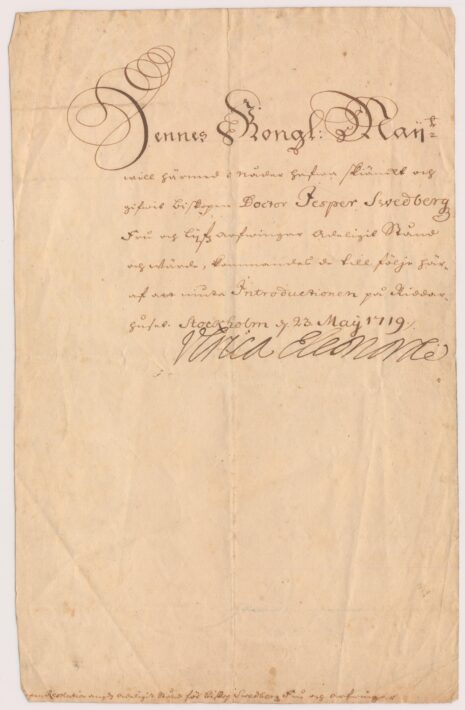 Hennes Kongl: Maij:tz
will härmed i Nåder hafwa skiänckt och
gifwit biskopen Doctor Jesper Swedberg
Fru och Lijfs arfwingar Adeligit Stånd
och wärde, kommandes de till följe här
af att niuta Introductionen på Riddar
huset. Stockholm d. 23 Maij 1719.
Vlrica Eleonora
Resolution angde adeligit Stånd för Biskop Swedberg Fru och arfwingar